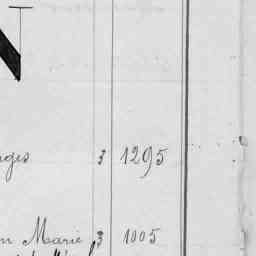 N
nges 3 1295
n Marie 3 1005